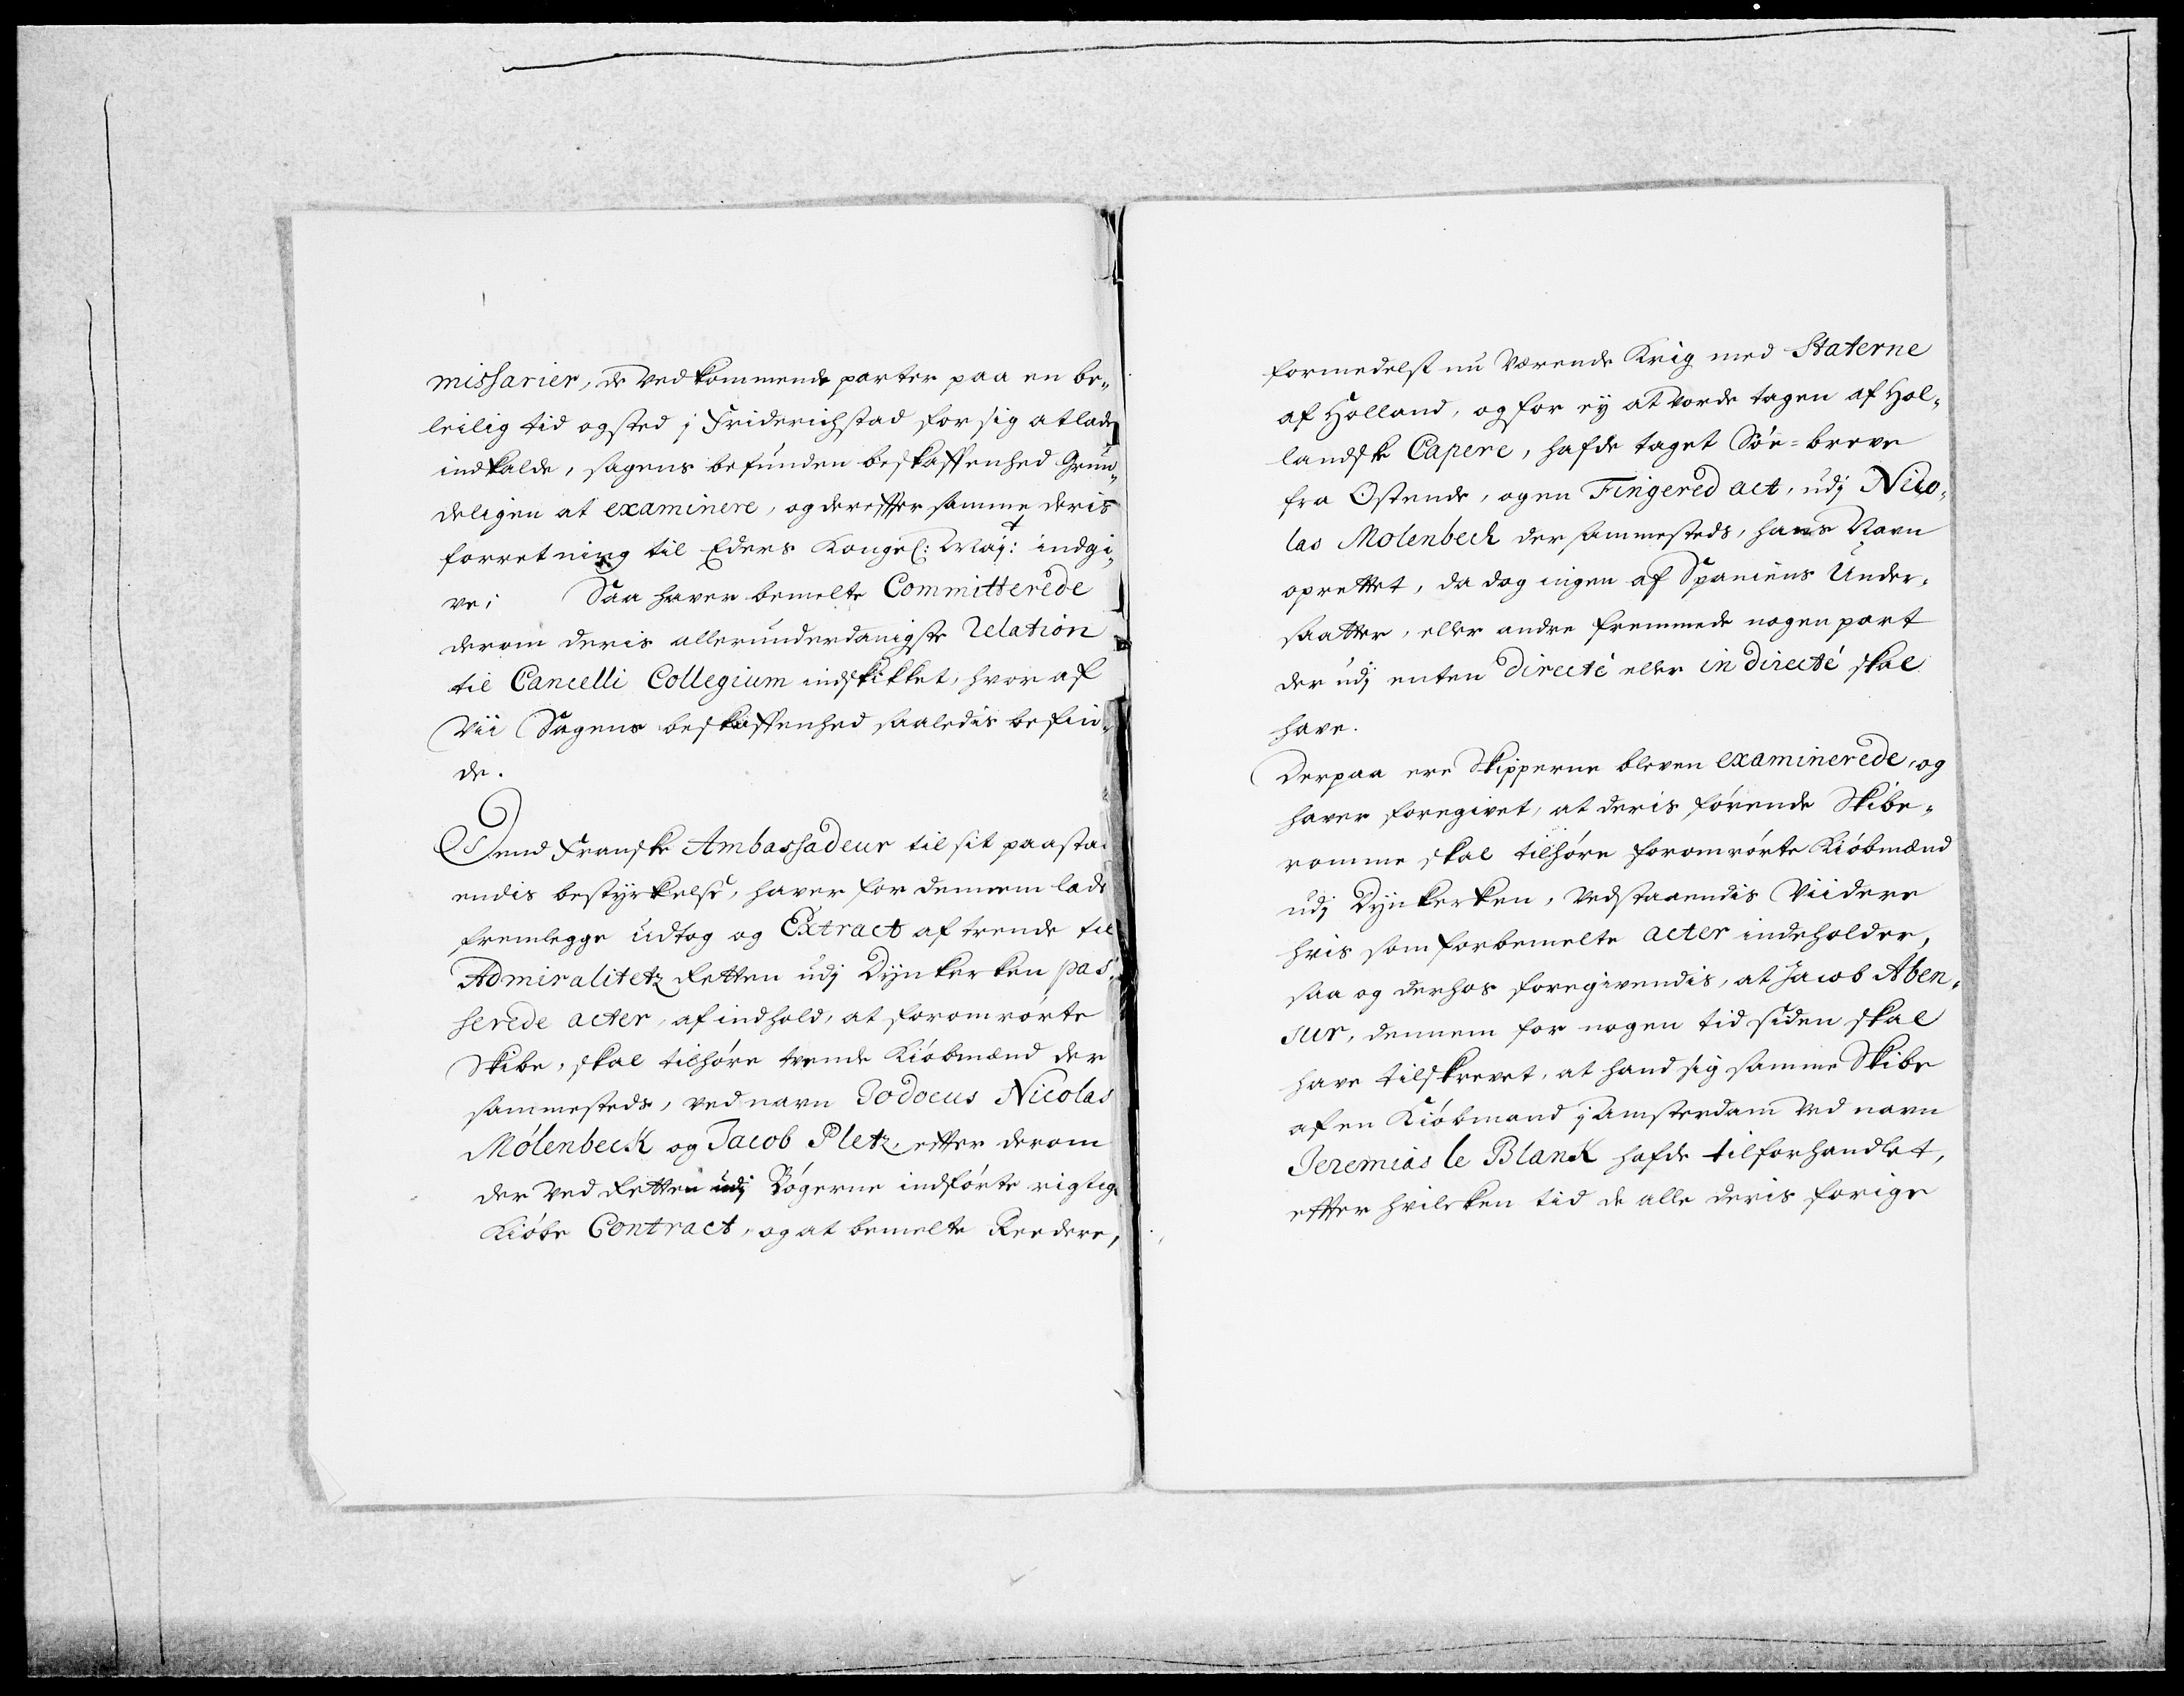 missarier, de vedkommende parter paa en be¬
leilig tid og sted j Friderichstad for sig at lade
indkalde, sagens befunden beskaffenhed Grun¬
deligen at examinere, og derefter samme deris
forretning til Eders Kongel: May:t indgi¬
ve; Saa haver bemelte Committerede
derom deris allerunderdanigste Relation
til Cancelli Collegium indskikket, hvor af
Vii Sagens beskaffenhed saaledis befin¬
de.
Dend Franske Ambassadeur til sit paasta¬
endis bestyrkelse, haver for dennem lade
fremlegge udtog og Extract af trende til
Admiralitetz Retten udj Dynkerken pas¬
serede acter, af indhold, at foromrørte
Skibe, skal tilhøre tvende Kiøbmænd der
sammesteds, ved navn Jodocus Nicolas
Mølenbeck og Jacob Pletz, efter derom
der ved Retten udj Bøgerne indførte rigtige
Kiøbe Contract, og at bemelte Reedere,
formedelst nu værende Krig med Staterne
af Holland, og for ey at vorde tagen af Hol¬
landske Capere, hafde taget Søe-breve
fra Ostende, og en Fingered act, udj Nico¬
las Molenbeck der sammesteds, hans Navn
oprettet, da dog ingen af Spaniens Under¬
saatter, eller andre fremmede nogen part
der udj enten directé eller in directé skal
have.
Derpaa ere Skipperne bleven examinerede, og
haver foregivet, at deris førende Skibe¬
romme skal tilhøre foromrørte Kiøbmænd
udj Dynkerken, vedstaaendis Viidere
hvis som forbemelte acter indeholder,
saa og derhos foregivendis, at Jacob Aben¬
sur, dennem for nogen tid siden skal
have tilskrevet, at hand sig samme Skibe
af en Kiøbmand j Amsterdam ved navn
Jeremias le Blank hafde tilforhandlet,
efter hvilken tid de alle deris forige